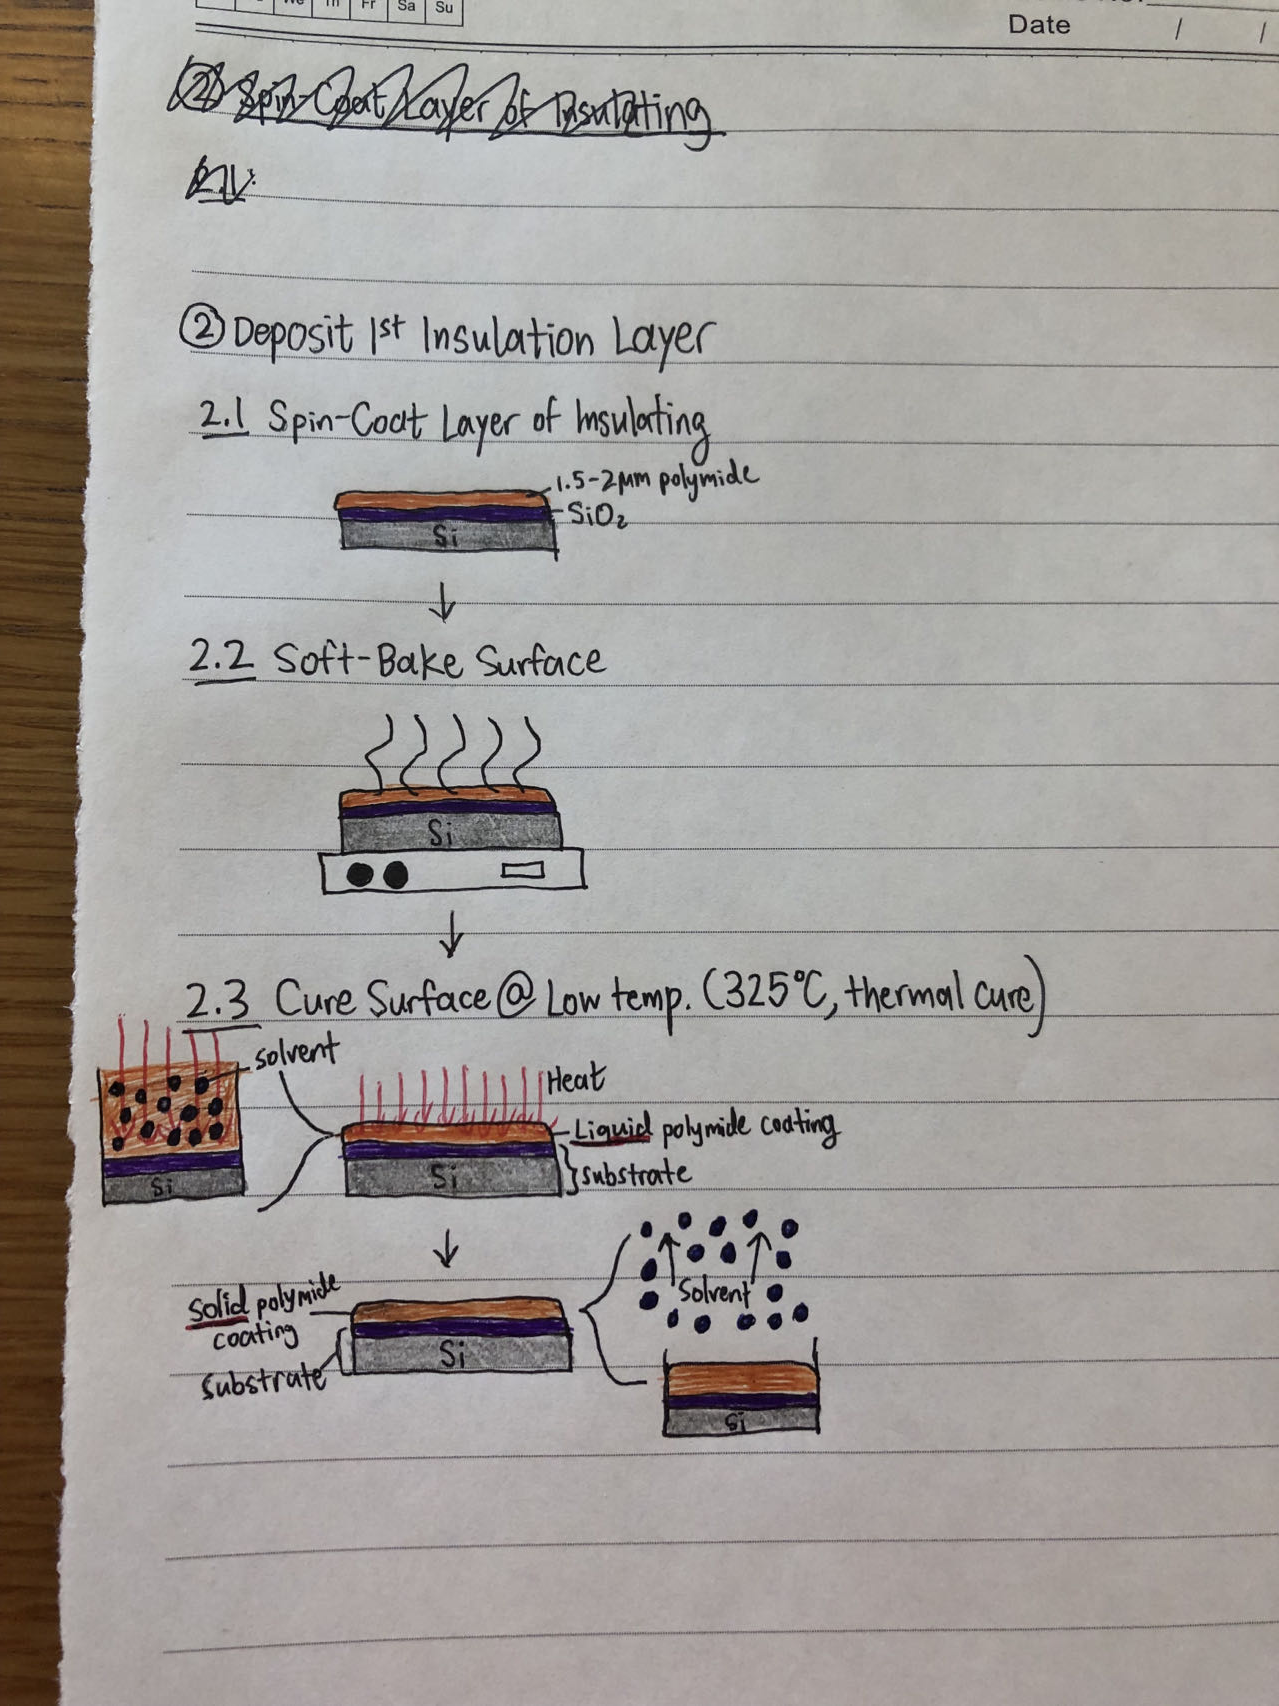 We Th Fr Sa Su
Date / /
② Spin-Coat Layer of Insulating
② Deposit 1st Insulation Layer
2.1 Spin-Coat Layer of Insulating
1.5-2μm polymide
SiO₂
Si
2.2 Soft-Bake Surface
Si
2.3 Cure Surface @ Low temp. (325°C, thermal cure)
solvent
Heat
Liquid polymide coating
Si
Si
substrate
Solvent
Solid polymide
coating
Si
substrate
Si